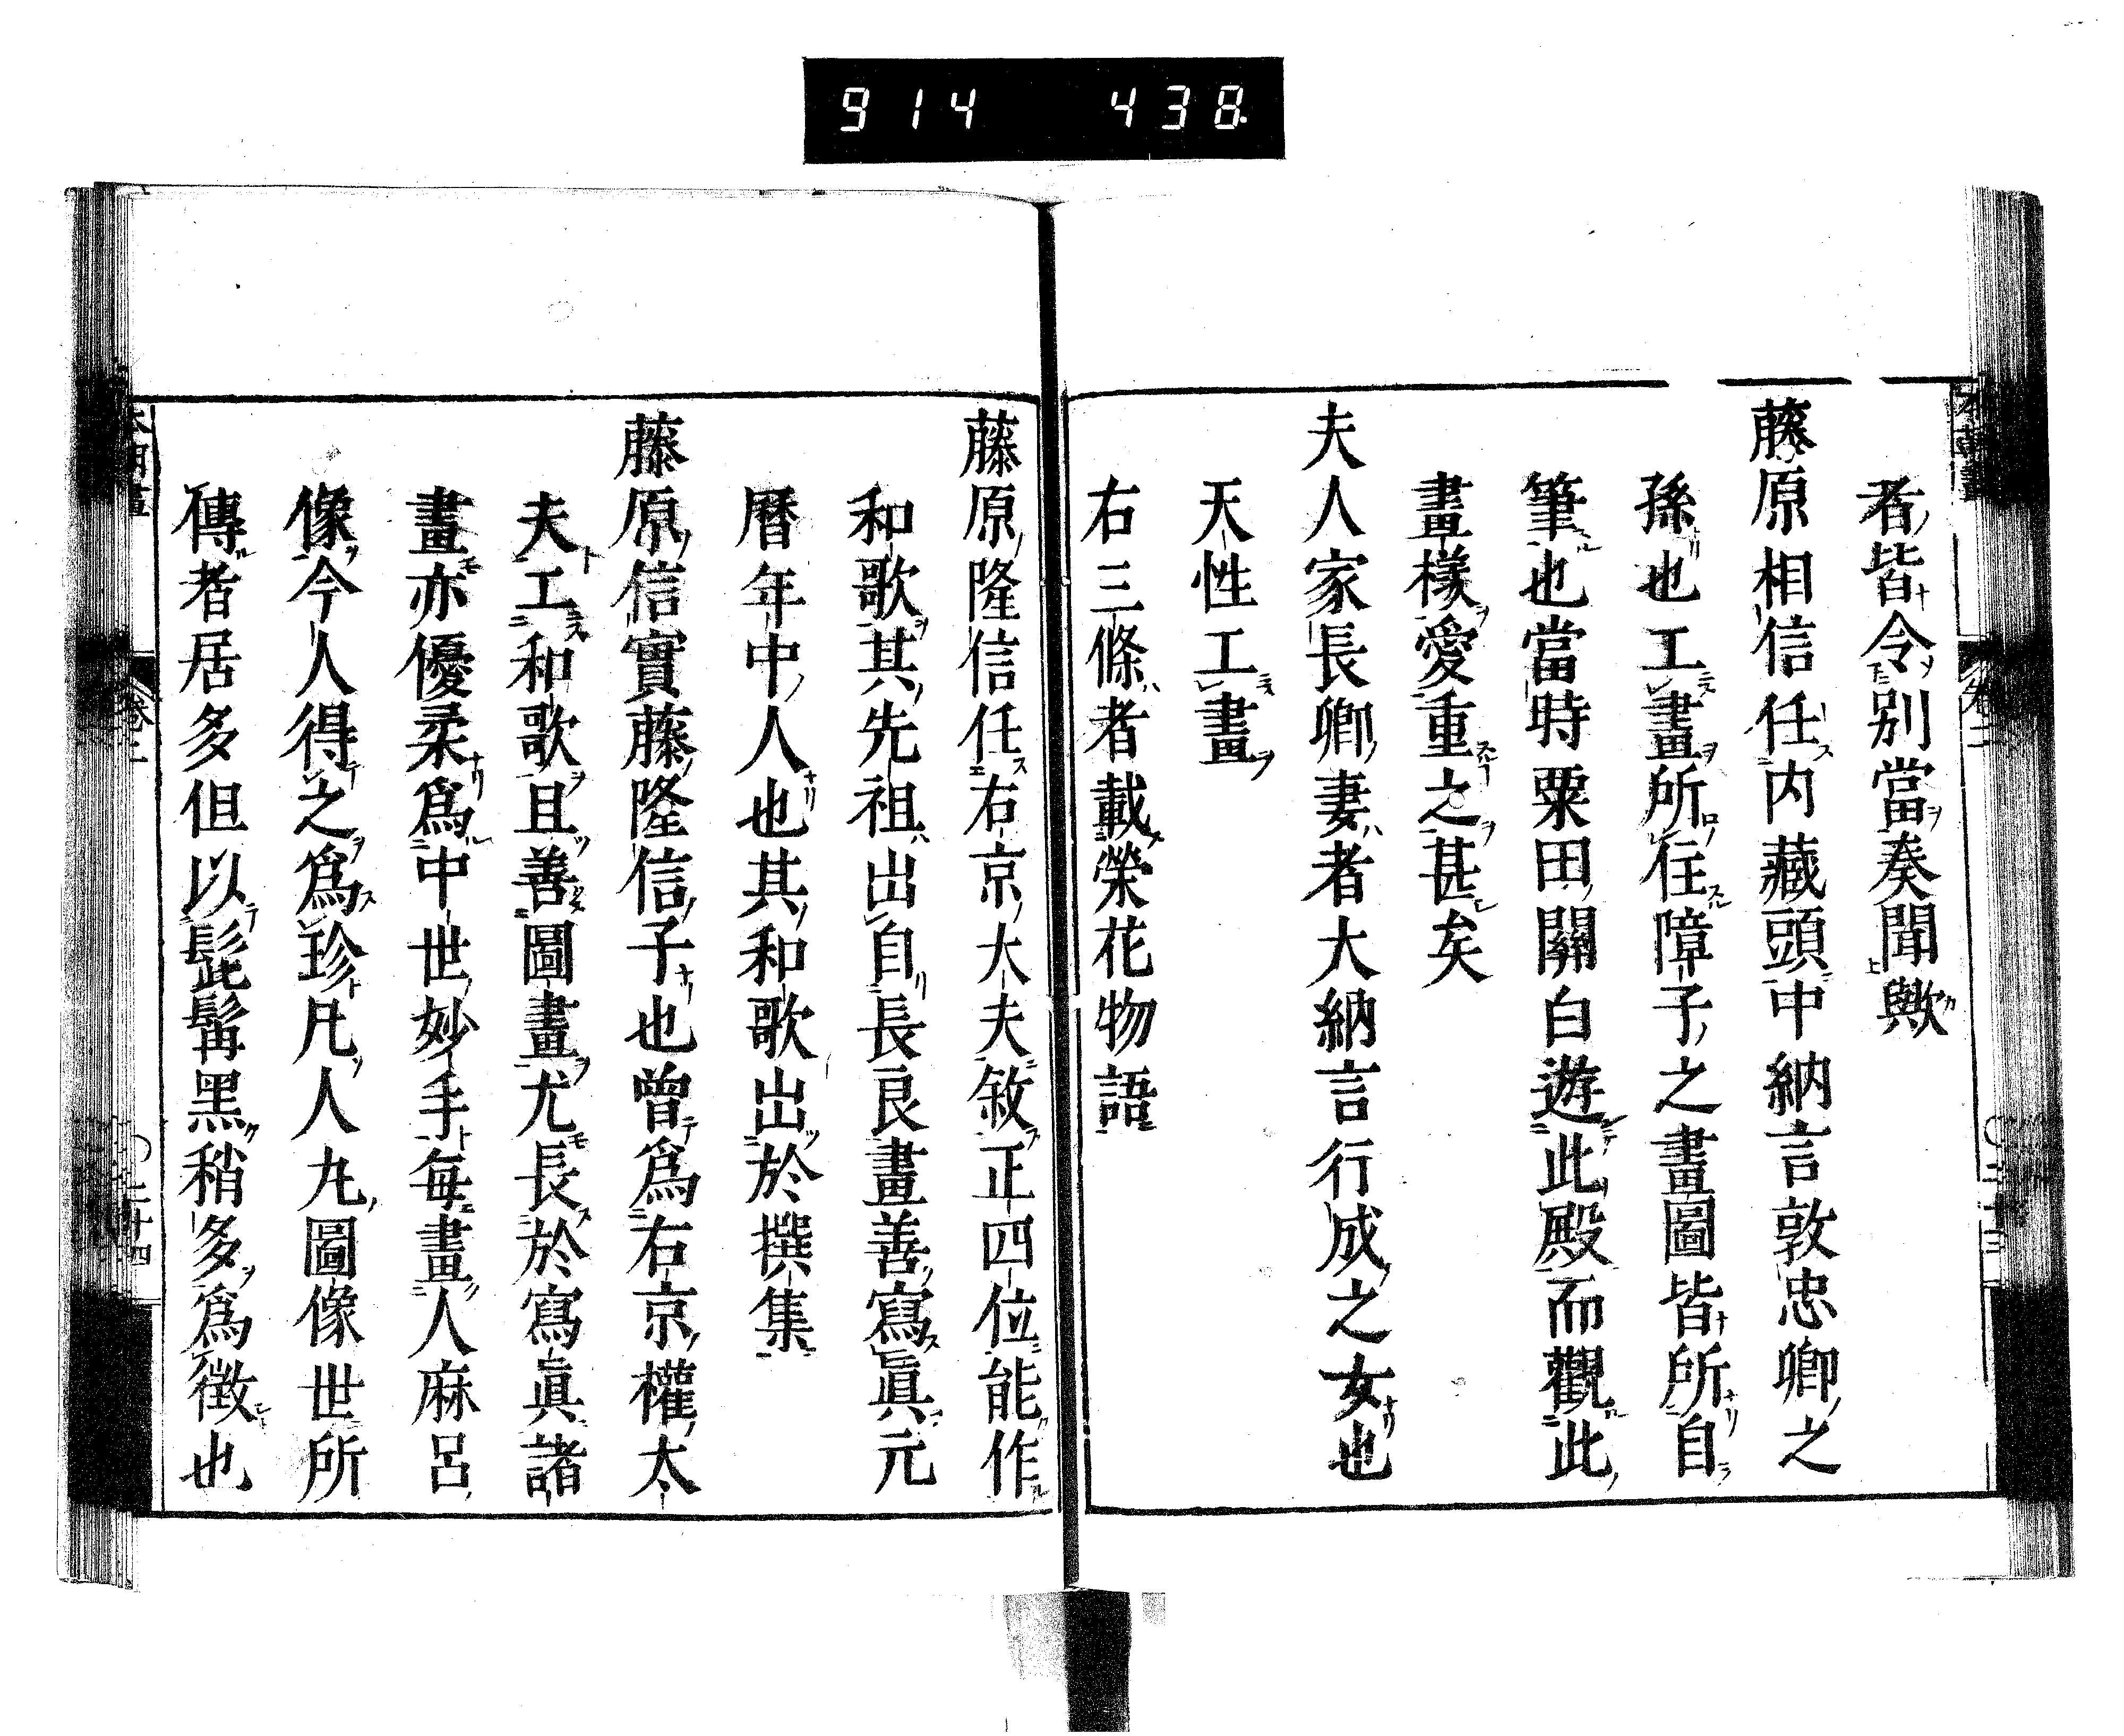 914 438
者皆令別當奏聞歟
藤原相信任内藏頭中納言敦忠卿之
孫也工畫所住障子之畫圖皆所自
筆也當時粟田關白遊此殿而觀此
畫樣愛重之甚矣
夫人家長卿妻者大納言行成之女也
天性工畫
右三條者載榮花物語
藤原隆信任右京大夫敘正四位能作
和歌其先祖出自長良畫善寫眞元
曆年中人也其和歌出於撰集
藤原信實藤隆信子也曾爲右京權太
夫工和歌且善圖畫尤長於寫眞諸
畫亦優柔爲中世妙手每畫人麻呂
像今人得之爲珍凡人丸圖像世所
傳者居多但以髭髯黑稍多爲徵也